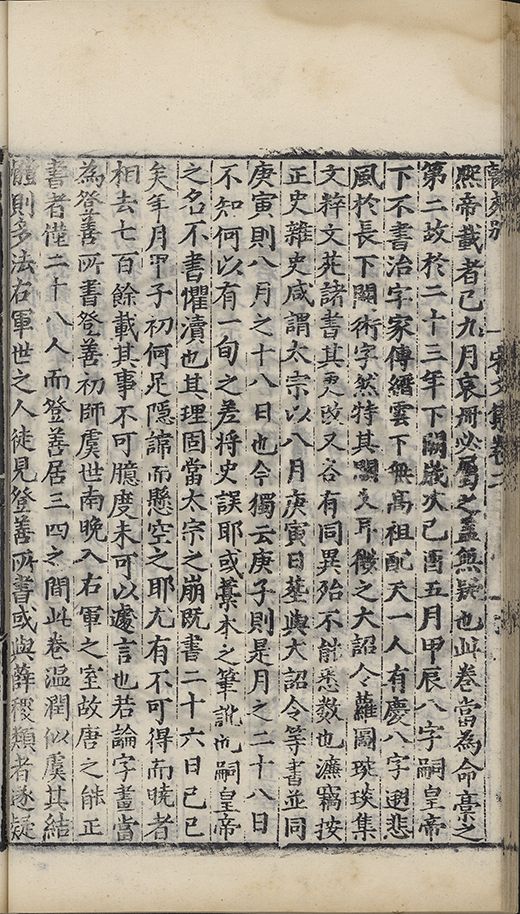 熙帝載者已九月哀冊必屬之蓋無疑也此卷當為命藁之
第二故於二十三年下闕歲次己酉五月甲辰八字嗣皇帝
下不書治字家傳縉雲下無高祖配天一人有慶八字遏悲
風於長下闕術字然特其闕文耳徵之大詔令蘿圖琬琰集
文粹文苑諸書其更改又各有同異殆不能悉數也濂竊按
正史雜史咸謂太宗以八月庚寅日葬與大詔令等書並同
庚寅則八月之十八日也今獨云庚子則是月之二十八日
不知何以有一旬之差將史誤耶或藁本之筆訛也嗣皇帝
之名不書懼瀆也其理固當太宗之崩既書二十六日己巳
矣年月甲子初何足隱諦而懸空之耶尤有不可得而曉者
相去七百餘載其事不可臆度未可以遽言也若論字畫當
為登善所書登善初師虞世南晚入右軍之室故唐之能正
書者僅二十八人而登善居三四之間此卷溫潤似虞其結
體則多法右軍世之人徒見登善所書或與薛稷類者遂疑